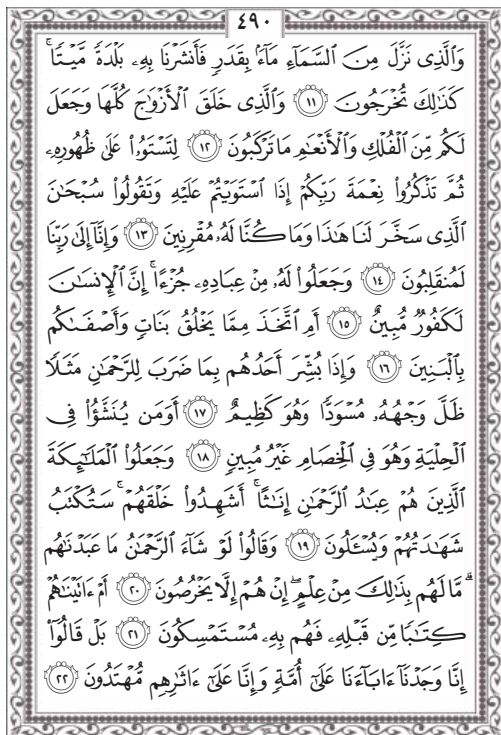 ٤٩٠
وَٱلَّذِى نَزَّلَ مِنَ ٱلسَّمَآءِ مَآءًۢ بِقَدَرٍ فَأَنشَرْنَا بِهِۦ بَلْدَةً مَّيْتًا ۚ
كَذَٰلِكَ تُخْرَجُونَ ١١ وَٱلَّذِى خَلَقَ ٱلْأَزْوَٰجَ كُلَّهَا وَجَعَلَ
لَكُم مِّنَ ٱلْفُلْكِ وَٱلْأَنْعَٰمِ مَا تَرْكَبُونَ ١٢ لِتَسْتَوُۥا۟ عَلَىٰ ظُهُورِهِۦ
ثُمَّ تَذْكُرُوا۟ نِعْمَةَ رَبِّكُمْ إِذَا ٱسْتَوَيْتُمْ عَلَيْهِ وَتَقُولُوا۟ سُبْحَٰنَ
ٱلَّذِى سَخَّرَ لَنَا هَٰذَا وَمَا كُنَّا لَهُۥ مُقْرِنِينَ ١٣ وَإِنَّآ إِلَىٰ رَبِّنَا
لَمُنقَلِبُونَ ١٤ وَجَعَلُوا۟ لَهُۥ مِنْ عِبَادِهِۦ جُزْءًا ۚ إِنَّ ٱلْإِنسَٰنَ
لَكَفُورٌ مُّبِينٌ ١٥ أَمِ ٱتَّخَذَ مِمَّا يَخْلُقُ بَنَاتٍ وَأَصْفَىٰكُم
بِٱلْبَنِينَ ١٦ وَإِذَا بُشِّرَ أَحَدُهُم بِمَا ضَرَبَ لِلرَّحْمَٰنِ مَثَلًا
ظَلَّ وَجْهُهُۥ مُسْوَدًّا وَهُوَ كَظِيمٌ ١٧ أَوَمَن يُنَشَّؤُا۟ فِى
ٱلْحِلْيَةِ وَهُوَ فِى ٱلْخِصَامِ غَيْرُ مُبِينٍ ١٨ وَجَعَلُوا۟ ٱلْمَلَٰٓئِكَةَ
ٱلَّذِينَ هُمْ عِبَٰدُ ٱلرَّحْمَٰنِ إِنَٰثًا ۚ أَشَهِدُوا۟ خَلْقَهُمْ ۚ سَتُكْتَبُ
شَهَٰدَتُهُمْ وَيُسْـَٔلُونَ ١٩ وَقَالُوا۟ لَوْ شَآءَ ٱلرَّحْمَٰنُ مَا عَبَدْنَٰهُم ۗ
مَّا لَهُم بِذَٰلِكَ مِنْ عِلْمٍ ۖ إِنْ هُمْ إِلَّا يَخْرُصُونَ ٢٠ أَمْ ءَاتَيْنَٰهُمْ
كِتَٰبًا مِّن قَبْلِهِۦ فَهُم بِهِۦ مُسْتَمْسِكُونَ ٢١ بَلْ قَالُوٓا۟
إِنَّا وَجَدْنَآ ءَابَآءَنَا عَلَىٰٓ أُمَّةٍ وَإِنَّا عَلَىٰٓ ءَاثَٰرِهِم مُّهْتَدُونَ ٢٢